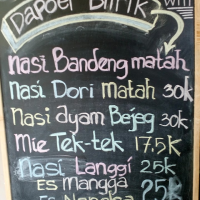 Dapoer Bilik
Wm
Nasi Bandeng matah
Nasi Dori matah 30k
Nasi ayam Bejeg 30k
Mie Tek-tek 17.5k
Nasi Langgi 25k
ES Mangga 25k
ES